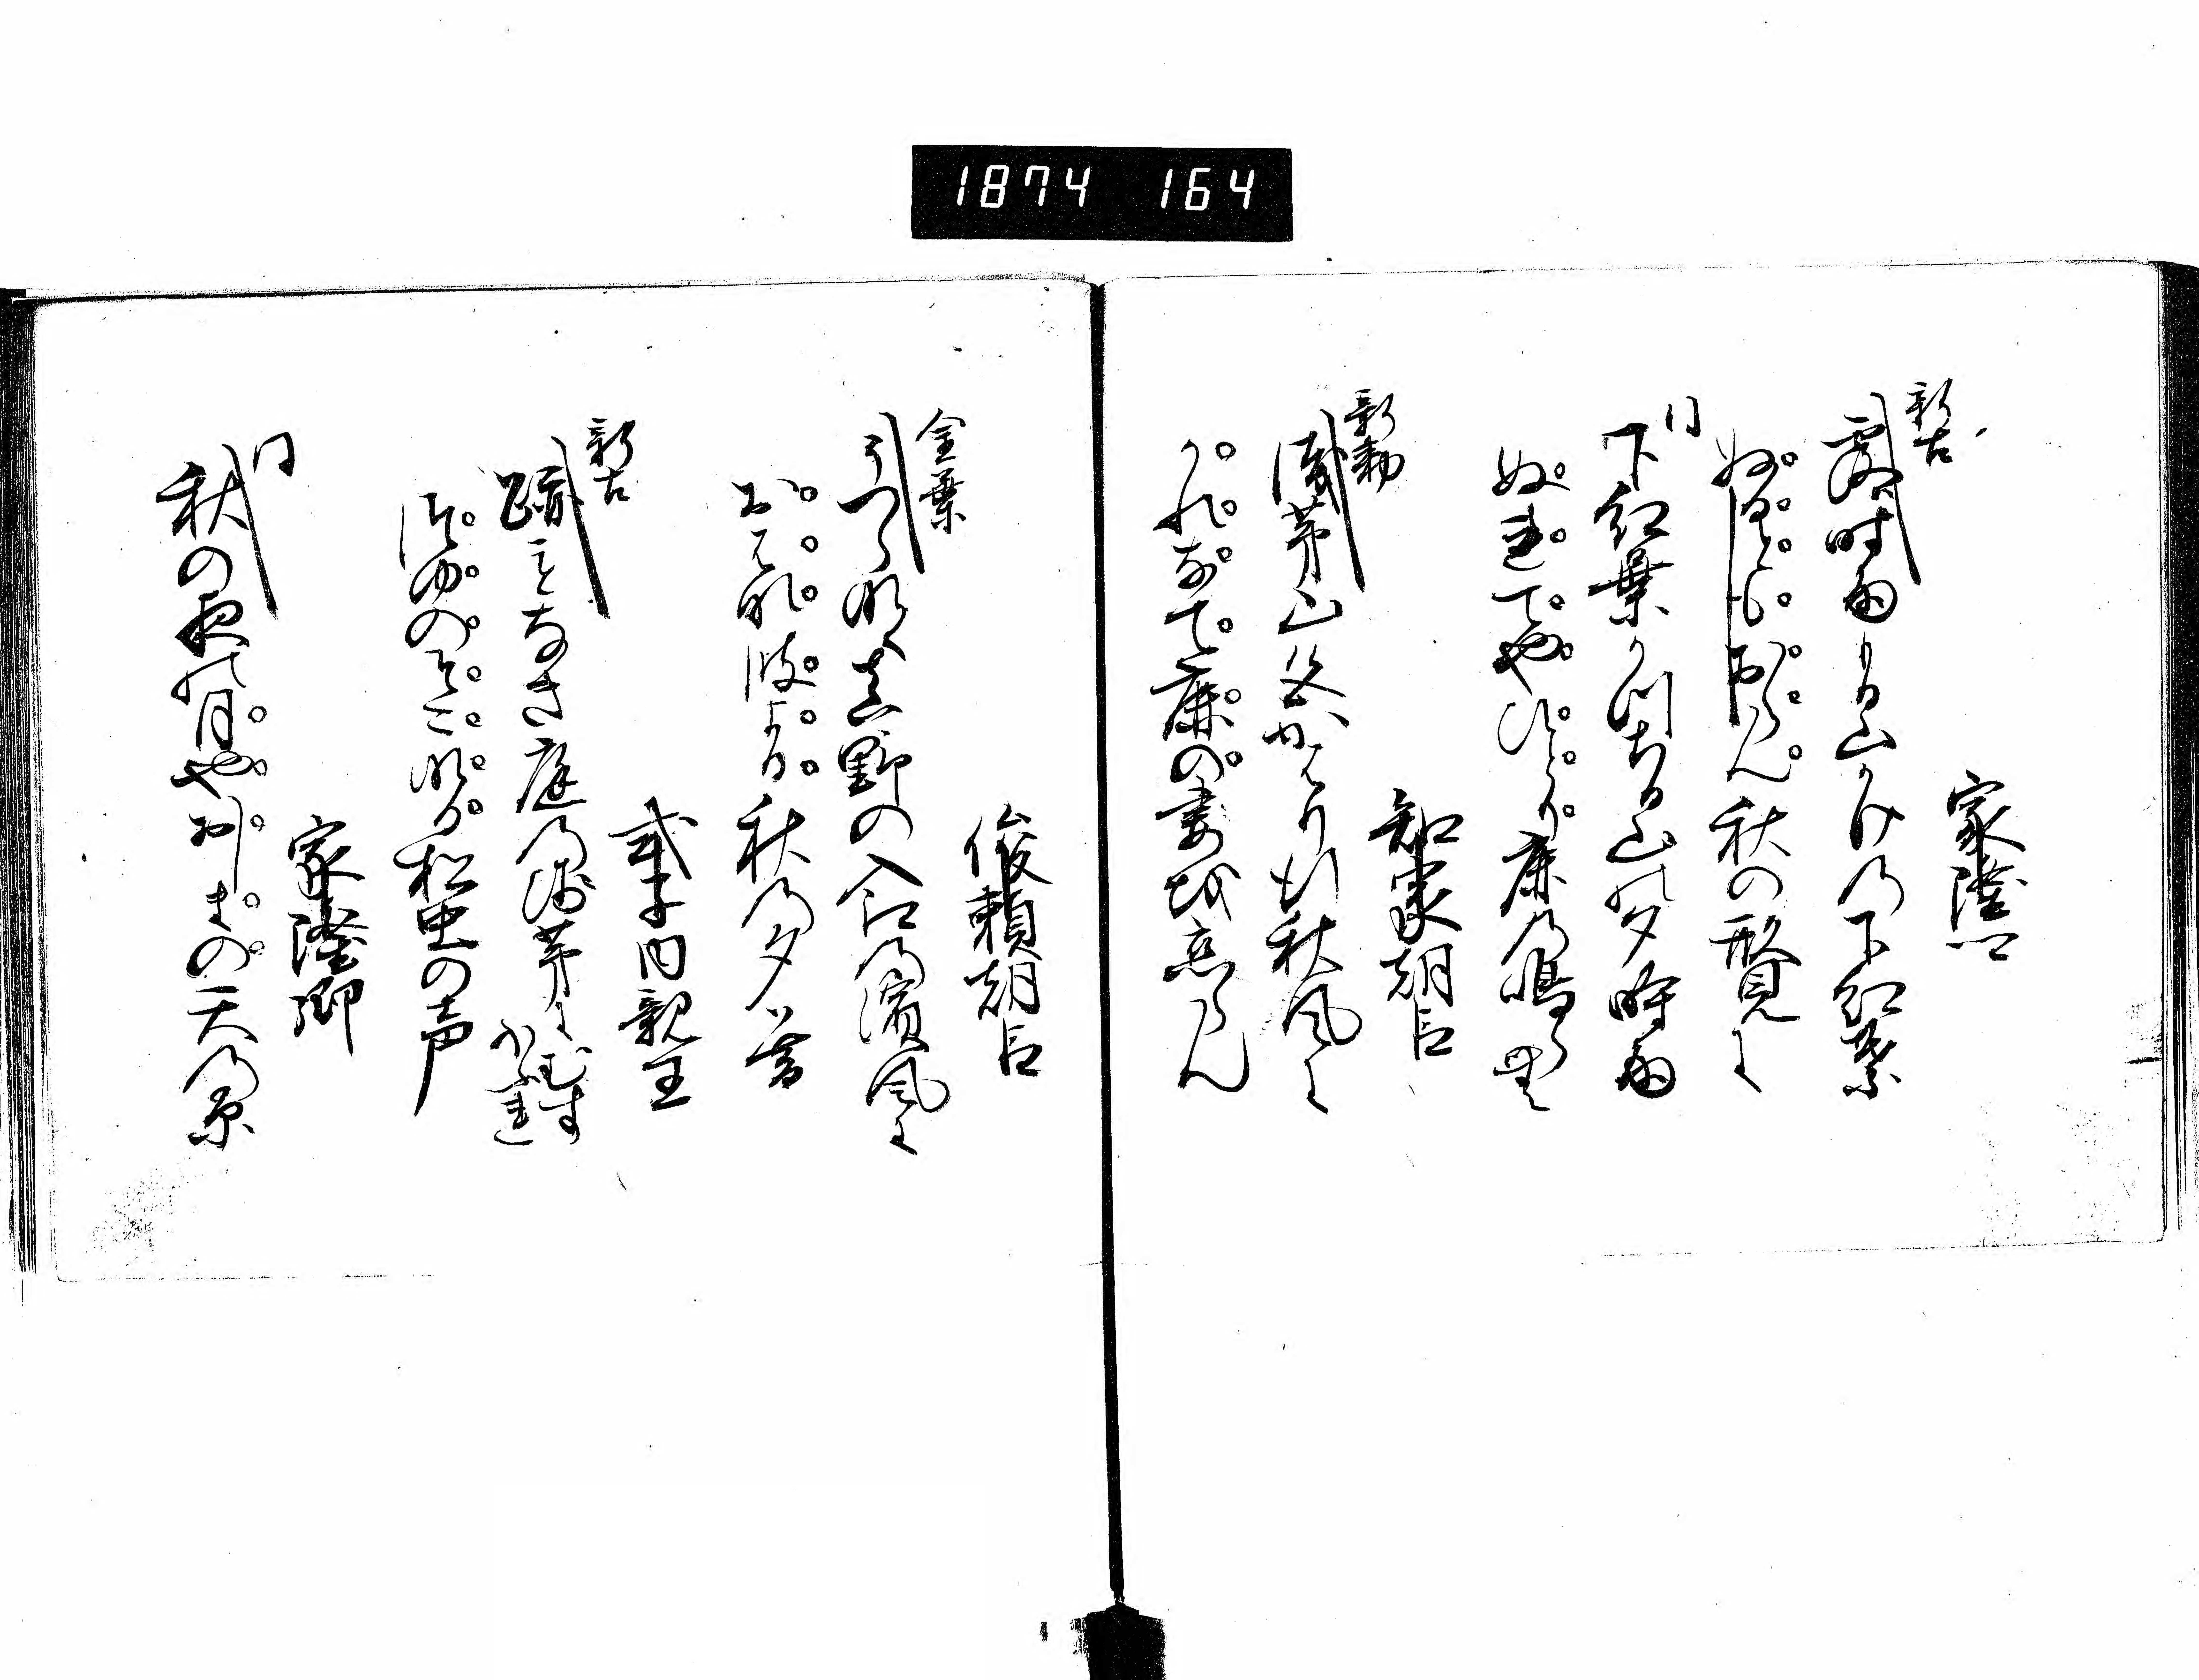 1874 164
家隆卿
新古
露時雨もる山かけの下紅葉
ぬるともおらん秋の形見に
同
下紅葉かつちる山の夕時雨
ぬれてやひとり鹿の鳴らむ
知家朝臣
新勅
浅茅山色かはり行秋風に
かれなて鹿の妻を恋らん
俊頼朝臣
金葉
うつら鳴真野の入江の濱風に
おはな波よる秋の夕暮
式子内親王
新古
跡もなき庭の浅茅にむすほふれ
露のそこなる松虫の声
家隆卿
同
秋の夜の月やおしまの天の原